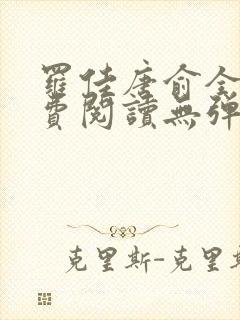 羅佳唐俞全
費閱讀無彈
克里斯-克里斯